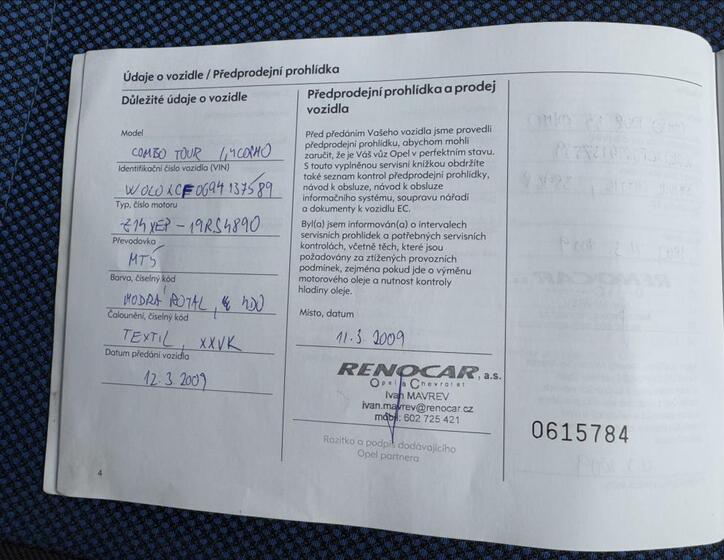 Údaje o vozidle / Předprodejní prohlídka
Důležité údaje o vozidle
Model
COMBO TOUR 1,4 COSMO
Identifikační číslo vozidla (VIN)
W0L0XCF0694137589
Typ, číslo motoru
Z14XEP - 19RS4890
Převodovka
MT5
Barva, číselný kód
MODRÁ ROYAL, 4D0
Čalounění, číselný kód
TEXTIL, XXVK
Datum předání vozidla
12.3.2009
4
Předprodejní prohlídka a prodej
vozidla
Před předáním Vašeho vozidla jsme provedli
předprodejní prohlídku, abychom mohli
zaručit, že je Váš vůz Opel v perfektním stavu.
S touto vyplněnou servisní knížkou obdržíte
také seznam kontrol předprodejní prohlídky,
návod k obsluze, návod k obsluze
informačního systému, soupravu nářadí
a dokumenty k vozidlu EC.
Byl(a) jsem informován(a) o intervalech
servisních prohlídek a potřebných servisních
kontrolách, včetně těch, které jsou
požadovány za ztížených provozních
podmínek, zejména pokud jde o výměnu
motorového oleje a nutnost kontroly
hladiny oleje.
Místo, datum
11.3.2009
RENOCAR, a.s.
Opel a Chevrolet
Ivan MAVREV
ivan.mavrev@renocar.cz
mobil: 602 725 421
Razítko a podpis dodávajícího
Opel partnera
0615784